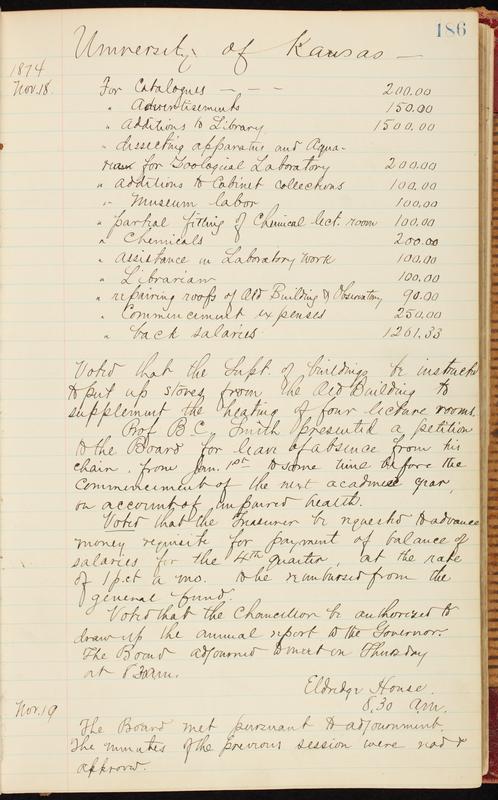 186
University of Kansas —
1874
Nov. 18. For Catalogues — — — 200.00
" Advertisements 150.00
" Additions to Library 1500.00
" dissecting apparatus and Aqua-
rium for Zoological Laboratory 200.00
" additions to Cabinet collections 100.00
" Museum labor 100.00
" partial fitting of Chemical lect. room 100.00
" Chemicals 200.00
" Assistance in Laboratory work 100.00
" Librarian 100.00
" repairing roofs of Old Building & Observatory 90.00
" Commencement expenses 250.00
" back salaries 1261.33
Voted that the Supt. of buildings be instructed
to put up stoves from the Old Building to
supplement the heating of four lecture rooms.
Prof. B. C. Smith presented a petition
to the Board for leave of absence from his
chair, from Jan. 1st to some time before the
Commencement of the next academic year,
on account of impaired health.
Voted that the Treasurer be requested to advance
money requisite for payment of balance of
salaries for the 4th quarter, at the rate
of 1 p.ct a mo. to be reimbursed from the
general fund.
Voted that the Chancellor be authorized to
draw up the annual report to the Governor.
The Board adjourned to meet on Thursday
at 8.30 a.m.
Eldridge House.
8.30 a.m.
Nov. 19
The Board met pursuant to adjournment.
The minutes of the previous session were read &
approved.